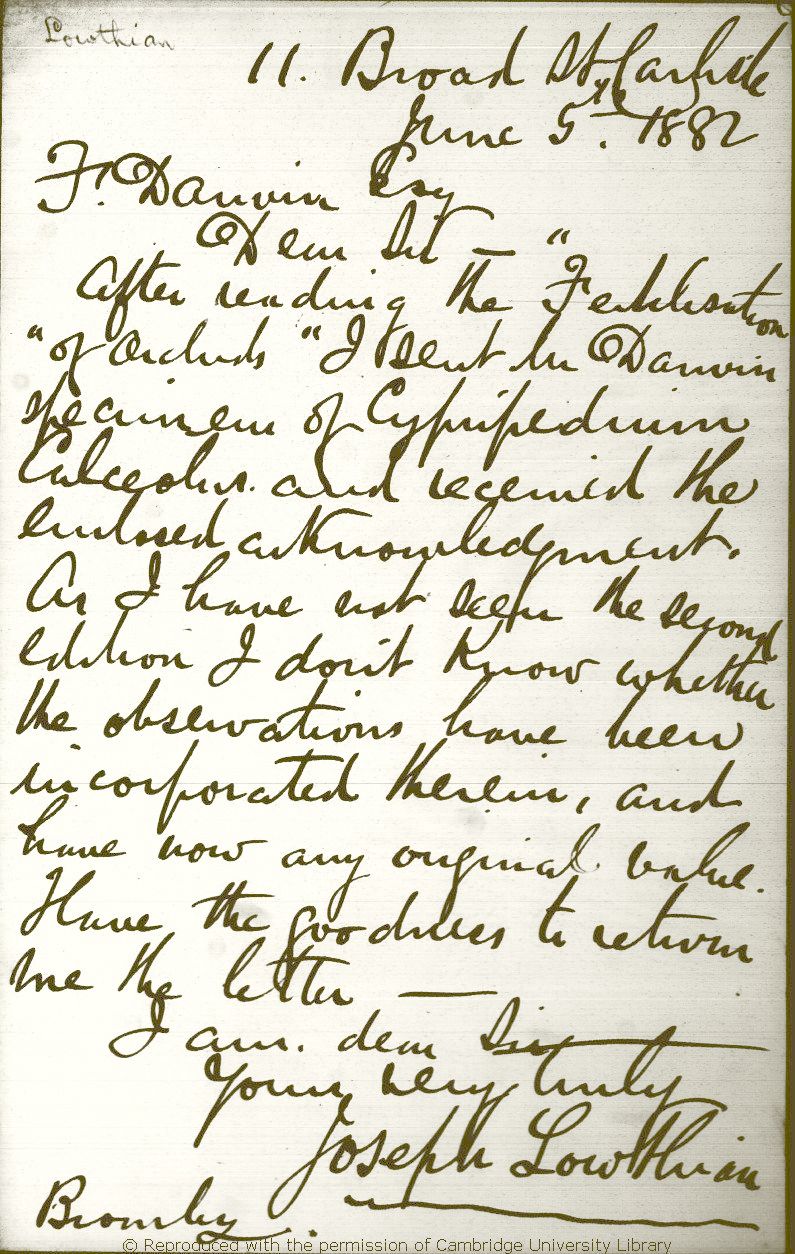 Lowthian
11. Broad St. Carlisle
June 5th. 1882
F. Darwin Esq
Dear Sir — "
After reading the "Fertilisation
"of Orchids" I sent Mr Darwin
specimens of Cypripedium
Calceolus. and received the
enclosed acknowledgment.
As I have not seen the second
edition I don't know whether
the observations have been
incorporated therein, and
have now any original value.
Have the goodness to return
me the letter —
I am. dear Sir
Yours very truly
Joseph Lowthian
Bromley.
© Reproduced with the permission of Cambridge University Library